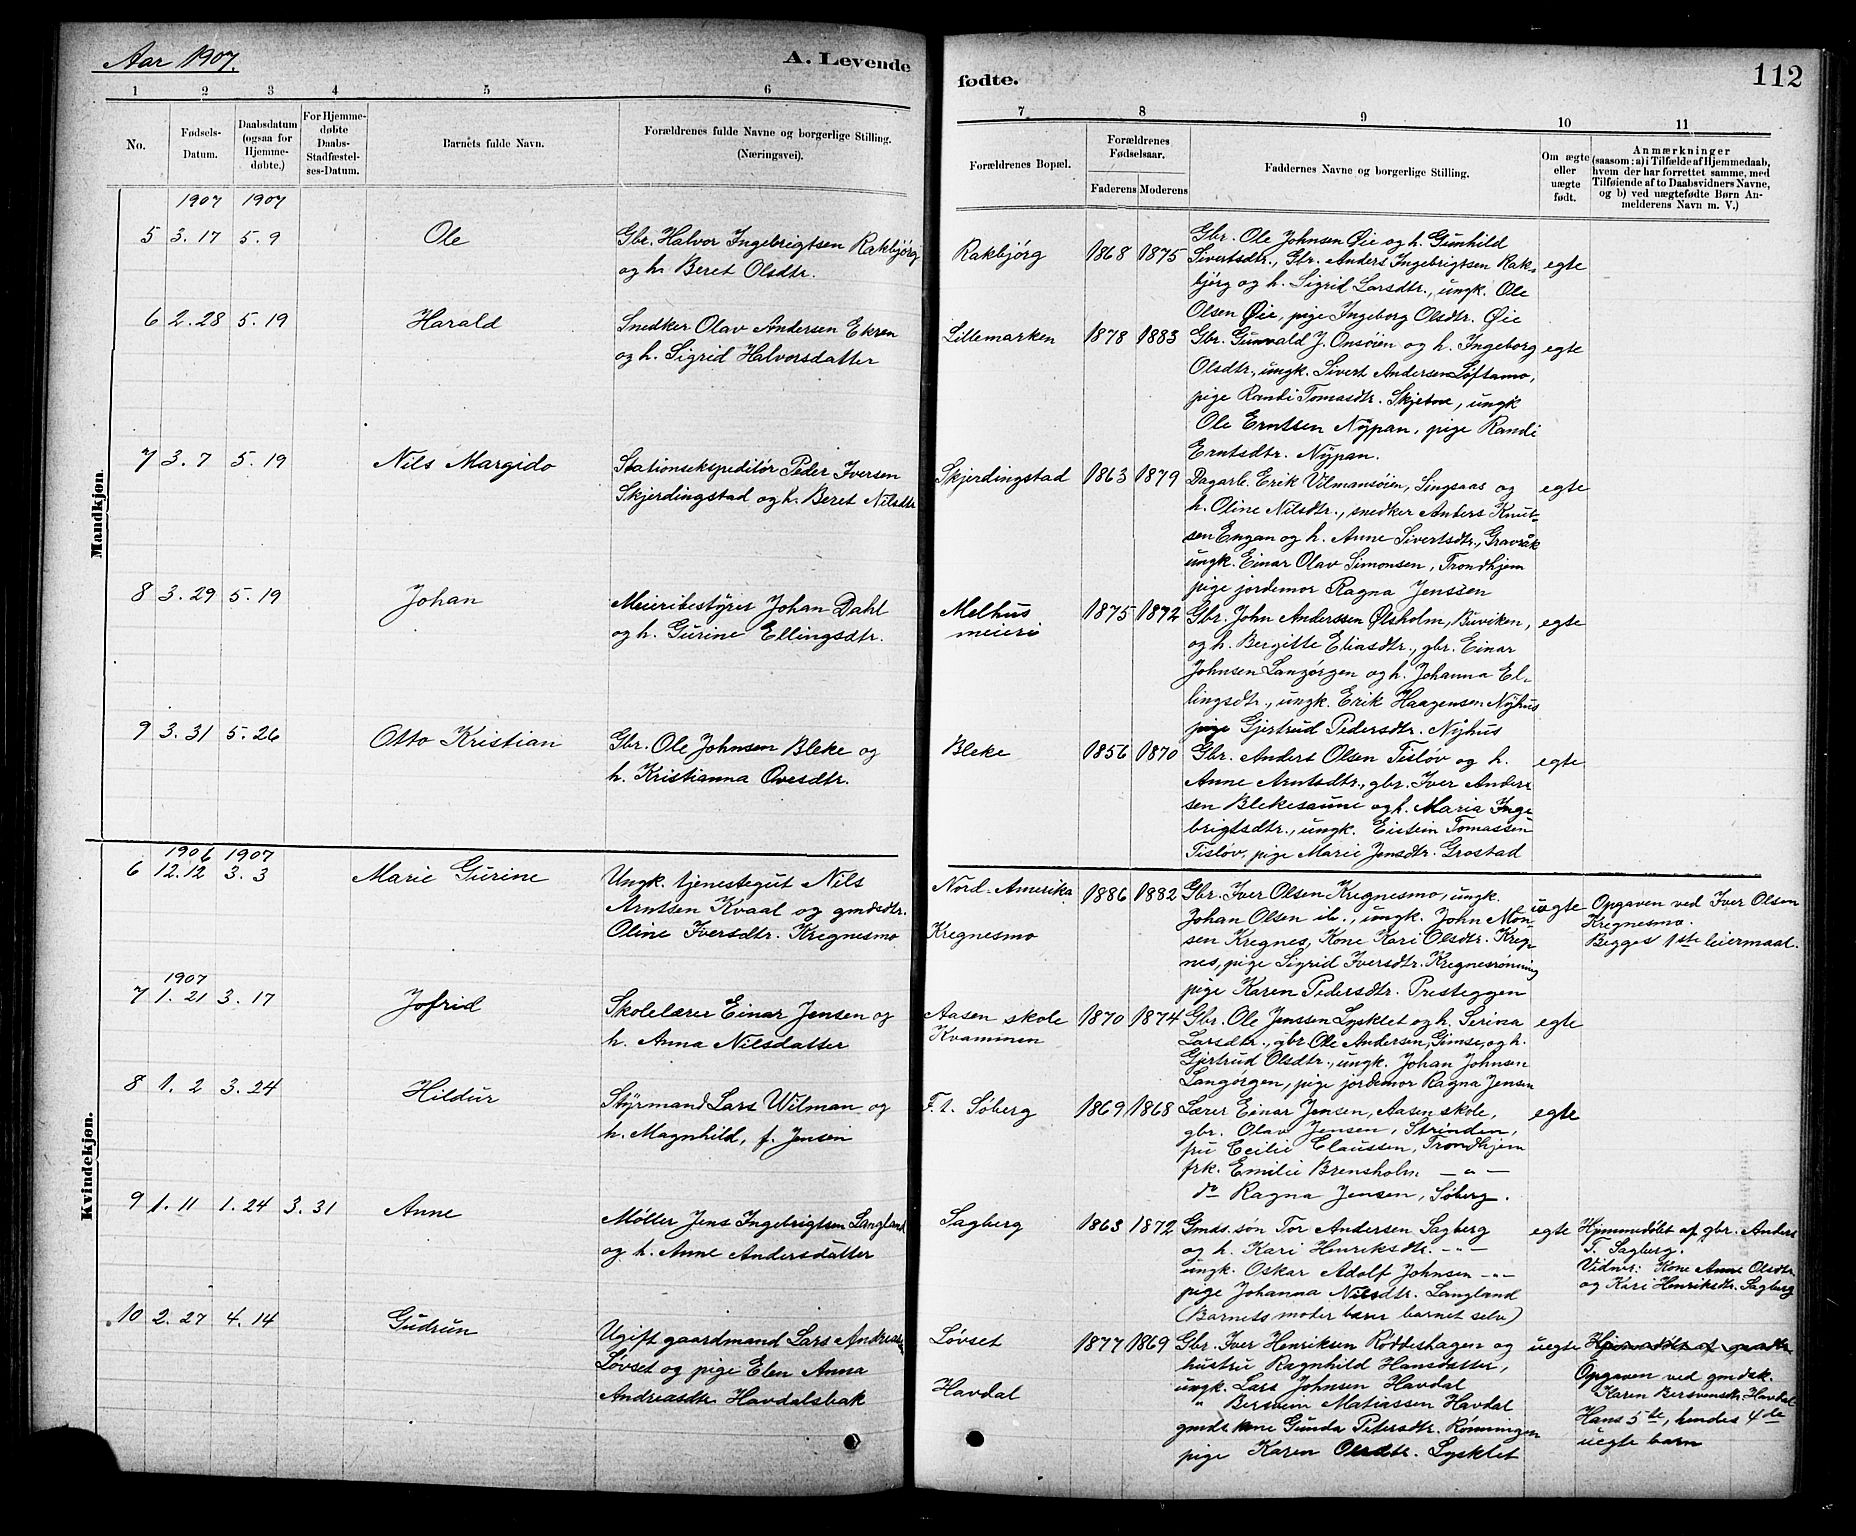 Aar 1907.
A. Levende
fødte.
112
1 2 3 4 5 6
7 8 9 10 11
No.
Fødsels-
Datum.
Daabsdatum
(ogsaa for
Hjemme-
døbte.)
For Hjemme-
døbte
Daabs-
Stadfæstel-
ses-Datum.
Barnets fulde Navn.
Forældrenes fulde Navne og borgerlige Stilling.
(Næringsvei).
Forældrenes Bopæl.
Forældrenes
Fødselsaar.
Faderens Moderens
Faddernes Navne og borgerlige Stilling.
Om ægte
eller
uægte
født.
Anmærkninger
(saasom: a) i Tilfælde af Hjemmedaab,
hvem der har forrettet samme, med
Tilføiende af to Daabsvidners Navne,
og b) ved uægtefødte Børn An-
melderens Navn m. V.)
Mandkjøn.
1907 1907
5 3.17 5.9 Ole
Gbr. Halvor Ingebrigtsen Rakbjørg
og h. Beret Olsdtr.
Rakbjørg 1868 1875
Gbr. Ole Johnsen Øie og h. Gunhild
Sivertsdtr., Gbr. Anders Ingebrigtsen Rak-
bjørg og h. Sigrid Larsdtr., ungk. Ole
Olsen Øie, pige Ingeborg Olsdtr. Øie
egte
6 2.28 5.19 Harald
Snedker Olav Andersen Ekren
og h. Sigrid Halvorsdatter
Lillemarken 1878 1883
Gbr. Gunvald J. Onsøien og h. Ingeborg
Olsdtr., ungk. Sivert Andersen Løftamo,
pige Randi Tomasdtr. Skjetne, ungk
Ole Erntsen Nypan, pige Randi
Erntsdtr. Nypan.
egte
7 3.7 5.19 Nils Margido
Stationsekspeditør Peder Iversen
Skjerdingstad og h. Beret Nilsdtr
Skjerdingstad 1863 1879
Dagarb. Erik Vilmansøien, Singsaas og
h. Oline Nilsdtr., snedker Anders Knut-
sen Engan og h. Anne Sivertsdtr., Gravråk
ungk. Einar Olav Simonsen, Trondhjem
pige jordemor Ragna Jenssen
egte
8 3.29 5.19 Johan
Meieribestyrer Johan Dahl
og h. Gurine Ellingsdtr.
Melhus
meieri
1875 1872
Gbr. John Anderssen Ølsholm, Buviken,
og h. Bergitte Eliasdtr., gbr. Einar
Johnsen Langørgen og h. Johanna El-
lingsdtr., ungk. Erik Haagensen Nyhus
pige Gjertrud Pedersdtr. Nyhus
egte
9 3.31 5.26 Otto Kristian
Gbr. Ole Johnsen Bleke og
h. Kristianna Ovesdtr.
Bleke 1856 1870
Gbr. Anders Olsen Tisløv og h.
Anne Arntsdtr., gbr. Iver Ander-
sen Blekesaune og h. Maria Inge
brigtsdtr., ungk. Eistein Tomassen
Tisløv, pige Marie Jensdtr. Grostad
egte
Kvindekjøn.
1906 1907
6 12.12 3.3 Marie Gurine
Ungk. tjenestegut Nils
Arntsen Kvaal og gmdsdtr.
Oline Iversdtr. Kregnesmo
Nord-Amerika
Kregnesmo
1886 1882
Gbr. Iver Olsen Kregnesmo, ungk.
Johan Olsen ib., ungk. John Mon-
sen Kregnes, Kone Kari Olsdtr. Kreg-
nes, pige Sigrid Iversdtr. Kregnesrønning
pige Karen Pedersdtr. Presteggen
uegte
Opgaven ved Iver Olsen
Kregnesmo.
Begges 1ste leiermaal.
1907
7 1.21 3.17 Jofrid
Skolelærer Einar Jensen og
h. Anna Nilsdatter
Aasen skole
Kvammen
1870 1874
Gbr. Ole Jenssen Lysklet og h. Serina
Larsdtr., gbr Ole Andersen, Gimse, og h.
Gjertrud Olsdtr., ungk. Johan Johnsen
Langørgen, pige jordemor Ragna Jensen
egte
8 1.2 3.24 Hildur
Styrmand Lars Wilman og
h. Magnhild, f. Jensen
F.t. Søberg 1869 1868
Lærer Einar Jensen, Aasen skole,
gbr. Olav Jensen, Strinden,
fru Cecilie Claussen, Trondhjem
frk. Emilie Brensholm — " —
do Ragna Jensen, Søberg.
egte
9 1.11 1.24 3.31 Anne
Møller Jens Ingebrigtsen Langland
og h. Anne Andersdatter
Sagberg 1863 1872
Gmds. søn Tor Andersen Sagberg
og h. Kari Henriksdtr. -"-
ungk. Oskar Adolf Johnsen -"-
pige Johanna Nilsdtr. Langland
(Barnets moder bærer barnet selv)
egte
Hjemmedøbt af gbr. Anders
T. Sagberg.
Vidner: Kone Anne Olsdtr
og Kari Henriksdtr. Sagberg
10 2.27 4.14 Gudrun
Ugift gaardmand Lars Andreas-
Løvset og pige Elen Anna
Andreasdtr. Havdalsbak
Løvset
Havdal
1877 1869
Gbr. Iver Henriksen Røddeshagen og
hustru Ragnhild Hansdatter,
ungk. Lars Johnsen Havdal
" Bersvem Matiassen Havdal
gmds.kone Gunda Petersdtr. Rønningen
pige Karen Olsdtr. Lysklet
uegte
Hjemmedøbt af
Opgaven ved gmdsk.
Karen Bersvensdtr. Havdal
Hans 5te, hendes 4de
uegte barn